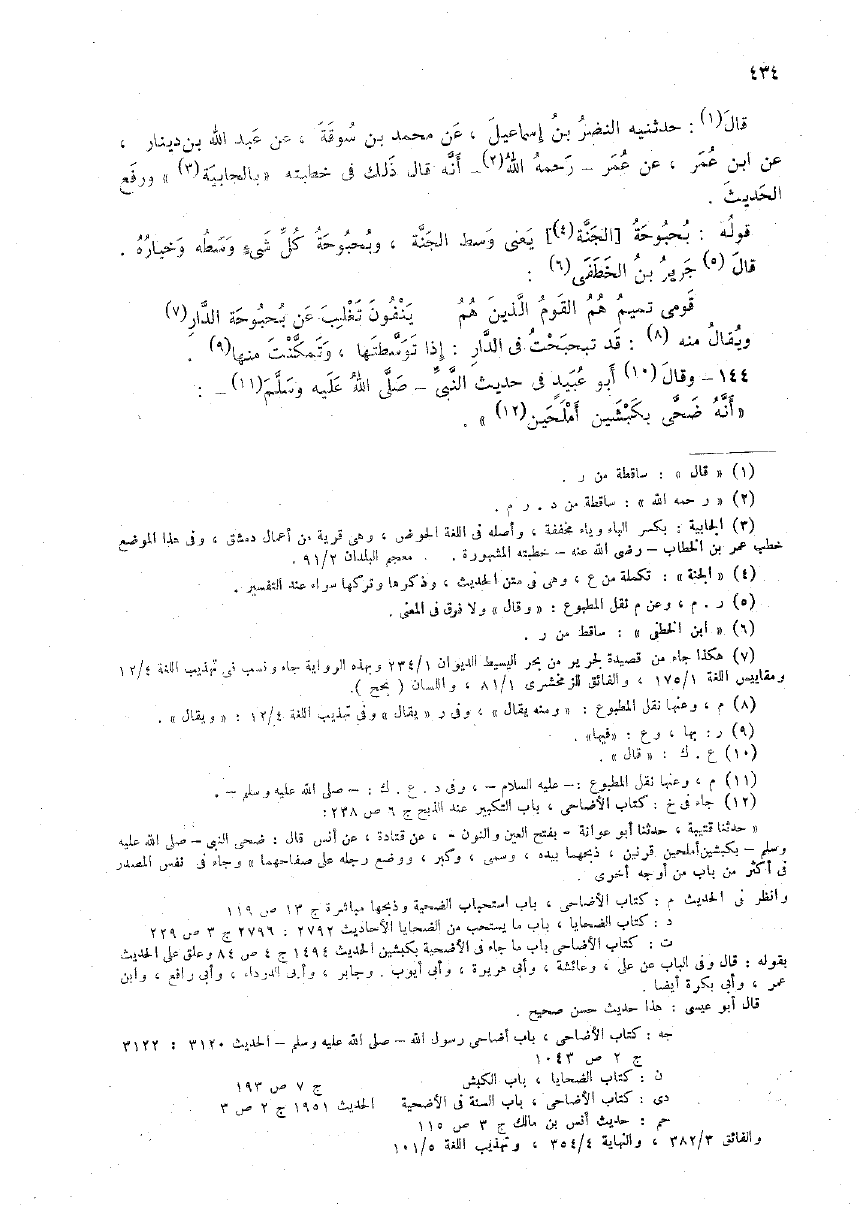 ٤٣٤
قالَ(١) : حدثنيه النضرُ بنُ إسماعيلَ ، عَن محمد بن سُوقَةَ ، عن عَبد الله بن دينار ،
عن ابن عُمَر ، عن عُمَر – رَحمهُ اللهُ(٢)– أنَّه قال ذَلك فى خطبته «بالجابيَة(٣) » ورفَع
الحَديثَ .
قولُه : بُحبُوحَةُ [الجَنَّة(٤)] يَعنى وَسط الجَنَّة ، وبُحبُوحَةُ كُلِّ شَىءٍ وَسَطُه وَخيارُهُ .
قالَ (٥) جَريرُ بنُ الخَطَفَى(٦) :
قَومى تميمُ هُمُ القَومُ الَّذينَ هُمُ يَنْفُونَ تَغْلِبَ عَن بُحبُوحَة الدَّارِ(٧)
ويُقالُ منه (٨) : قَد تبحبَحْتُ فى الدَّار : إذا تَوَسَّطتَها ، وَتَمكَّنْتَ منها(٩) .
١٤٤ – وقالَ (١٠) أبو عُبَيدٍ فى حديث النَّبىِّ – صَلَّى اللهُ عَلَيه وسَلَّمَ(١١)– :
«أَنَّهُ ضَحَّى بكَبْشَين أَمْلَحَين(١٢) » .
(١) « قال » : ساقطة من ر .
(٢) « رحمه الله » : ساقطة من د . ر م .
(٣) الجابية : بكسر الباء وياء مخففة ، وأصله فى اللغة الحوض ، وهى قرية من أعمال دمشق ، وفى هذا الموضع
خطب عمر بن الخطاب – رضى الله عنه – خطبته المشهورة . معجم البلدان ٩١/٢ .
(٤) « الجنة » : تكملة من ع ، وهى فى متن الحديث ، وذكرها وتركها سواء عند التفسير .
(٥) ر . م ، وعن م نقل المطبوع : «وقال » ولا فرق فى المعنى .
(٦) « ابن الخطفى » : ساقط من ر .
(٧) هكذا جاء من قصيدة لجرير من بحر البسيط الديوان ٢٣٤/١ وبهذه الرواية جاء ونسب فى تهذيب اللغة ١٢/٤
ومقاييس اللغة ١٧٥/١ ، والفائق للزمخشرى ٨١/١ ، واللسان ( بحح ).
(٨) م ، وعنها نقل المطبوع : «ومنه يقال » ، وفى ر «يقال » وفى تهذيب اللغة ١٢/٤ : «ويقال» .
(٩) ر : بها ، وع : «فيها» .
(١٠) ع . ك : « قال » .
(١١) م ، وعنها نقل المطبوع :– عليه السلام –، وفى د . ع . ك : – صلى الله عليه وسلم –.
(١٢) جاء فى خ : كتاب الأضاحى ، باب التكبير عند الذبح ج ٦ ص ٢٣٨:
« حدثنا قتيبة ، حدثنا أبو عوانة – بفتح العين والنون – ، عن قتادة ، عن أنس قال : ضحى النبى – صلى الله عليه
وسلم – بكبشين أملحين قرنين ، ذبحهما بيده ، وسمى ، وكبر ، ووضع رجله على صفاحهما » وجاء فى نفس المصدر
فى أكثر من باب من أوجه أخرى .
وانظر فى الحديث م : كتاب الأضاحى ، باب استحباب الضحية وذبحها مباشرة ج ١٣ ص ١١٩
د : كتاب الضحايا ، باب ما يستحب من الضحايا الأحاديث ٢٧٩٢ : ٢٧٩٦ ج ٣ ص ٢٢٩
ت : كتاب الأضاحى باب ما جاء فى الأضحية بكبشين الحديث ١٤٩٤ ج ٤ ص ٨٤ وعلق على الحديث
بقوله : قال وفى الباب عن على ، وعائشة ، وأبى هريرة ، وأبى أيوب . وجابر ، وأبى الدرداء ، وأبى رافع ، وابن
عمر ، وأبى بكرة أيضا .
قال أبو عيسى : هذا حديث حسن صحيح .
جه : كتاب الأضاحى ، باب أضاحى رسول الله – صلى الله عليه وسلم – الحديث ٣١٢٠ : ٣١٢٢
ج ٢ ص ١٠٤٣
ن : كتاب الضحايا ، باب الكبش ج ٧ ص ١٩٣
دى : كتاب الأضاحى ، باب السنة فى الأضحية الحديث ١٩٥١ ج ٢ ص ٣
حم : حديث أنس بن مالك ج ٣ ص ١١٥
والفائق ٣٨٢/٣ ، والنهاية ٣٥٤/٤ ، وتهذيب اللغة ١٠١/٥